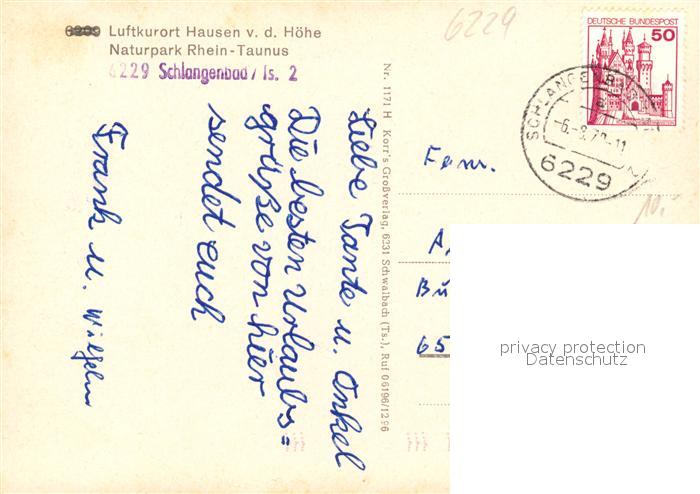 6209 Luftkurort Hausen v. d. Höhe
Naturpark Rhein-Taunus
6229 Schlangenbad / Ts. 2
6229
DEUTSCHE BUNDESPOST
50
SCHLANGENBAD
6229
Nr. 1171 H Korr's Großverlag, 6231 Schwalbach (Ts.), Ruf 06196/1296
Liebe Tante u. Onkel
Die besten Urlaubs=
grüße von hier
sendet euch
Frank u. Wilhelm
Fam.
Bu
65
10.-
privacy protection
Datenschutz